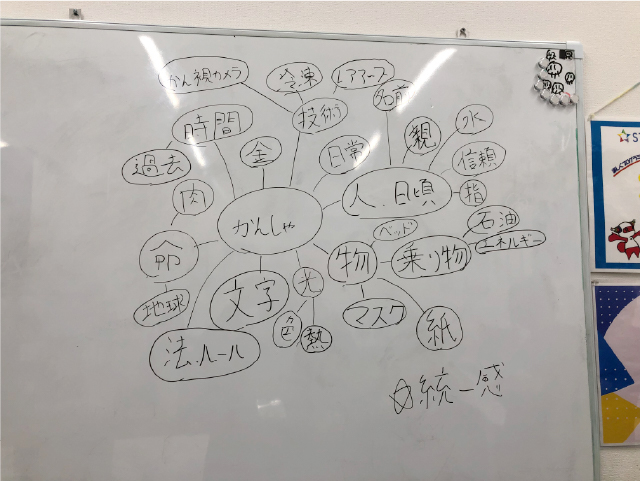 かん視カメラ
冷凍
レアアース
名前
時間
技術
親
水
過去
金
日常
信頼
肉
人、日頃
指
かんしゃ
石油
ベッド
エネルギー
命
物
乗り物
地球
文字
光
マスク
紙
法、ルール
色
熱
☆統一感